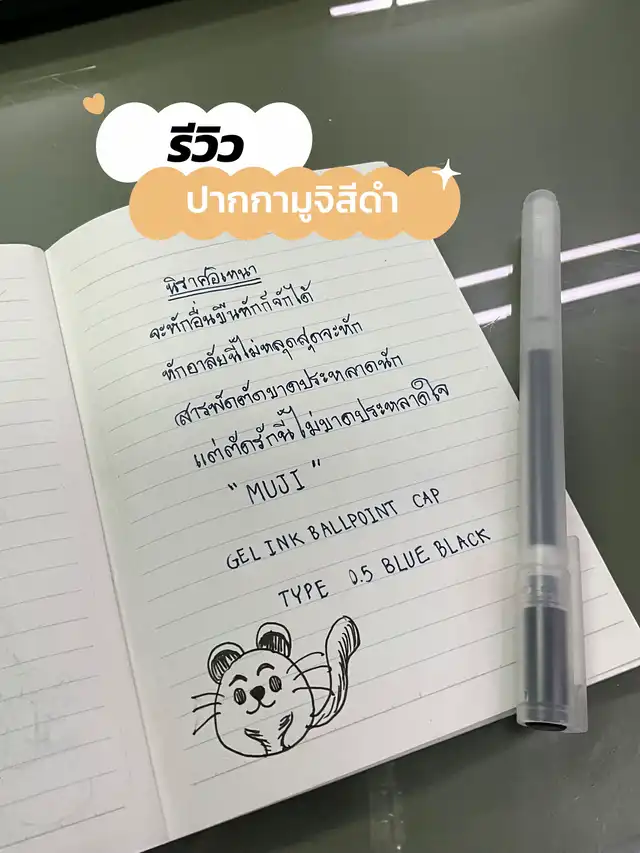 รีวิว
ปากกามูจิสีดำ
นิราศอิเหนา
จะหักอื่นขืนหักก็จักได้
หักอาลัยนี้ไม่หลุดสุดจะหัก
สารพัดตัดขาดประหลาดนัก
แต่ตัดรักนี้ไม่ขาดประหลาดใจ
"MUJI"
GEL INK BALLPOINT CAP
TYPE 0.5 BLUE BLACK